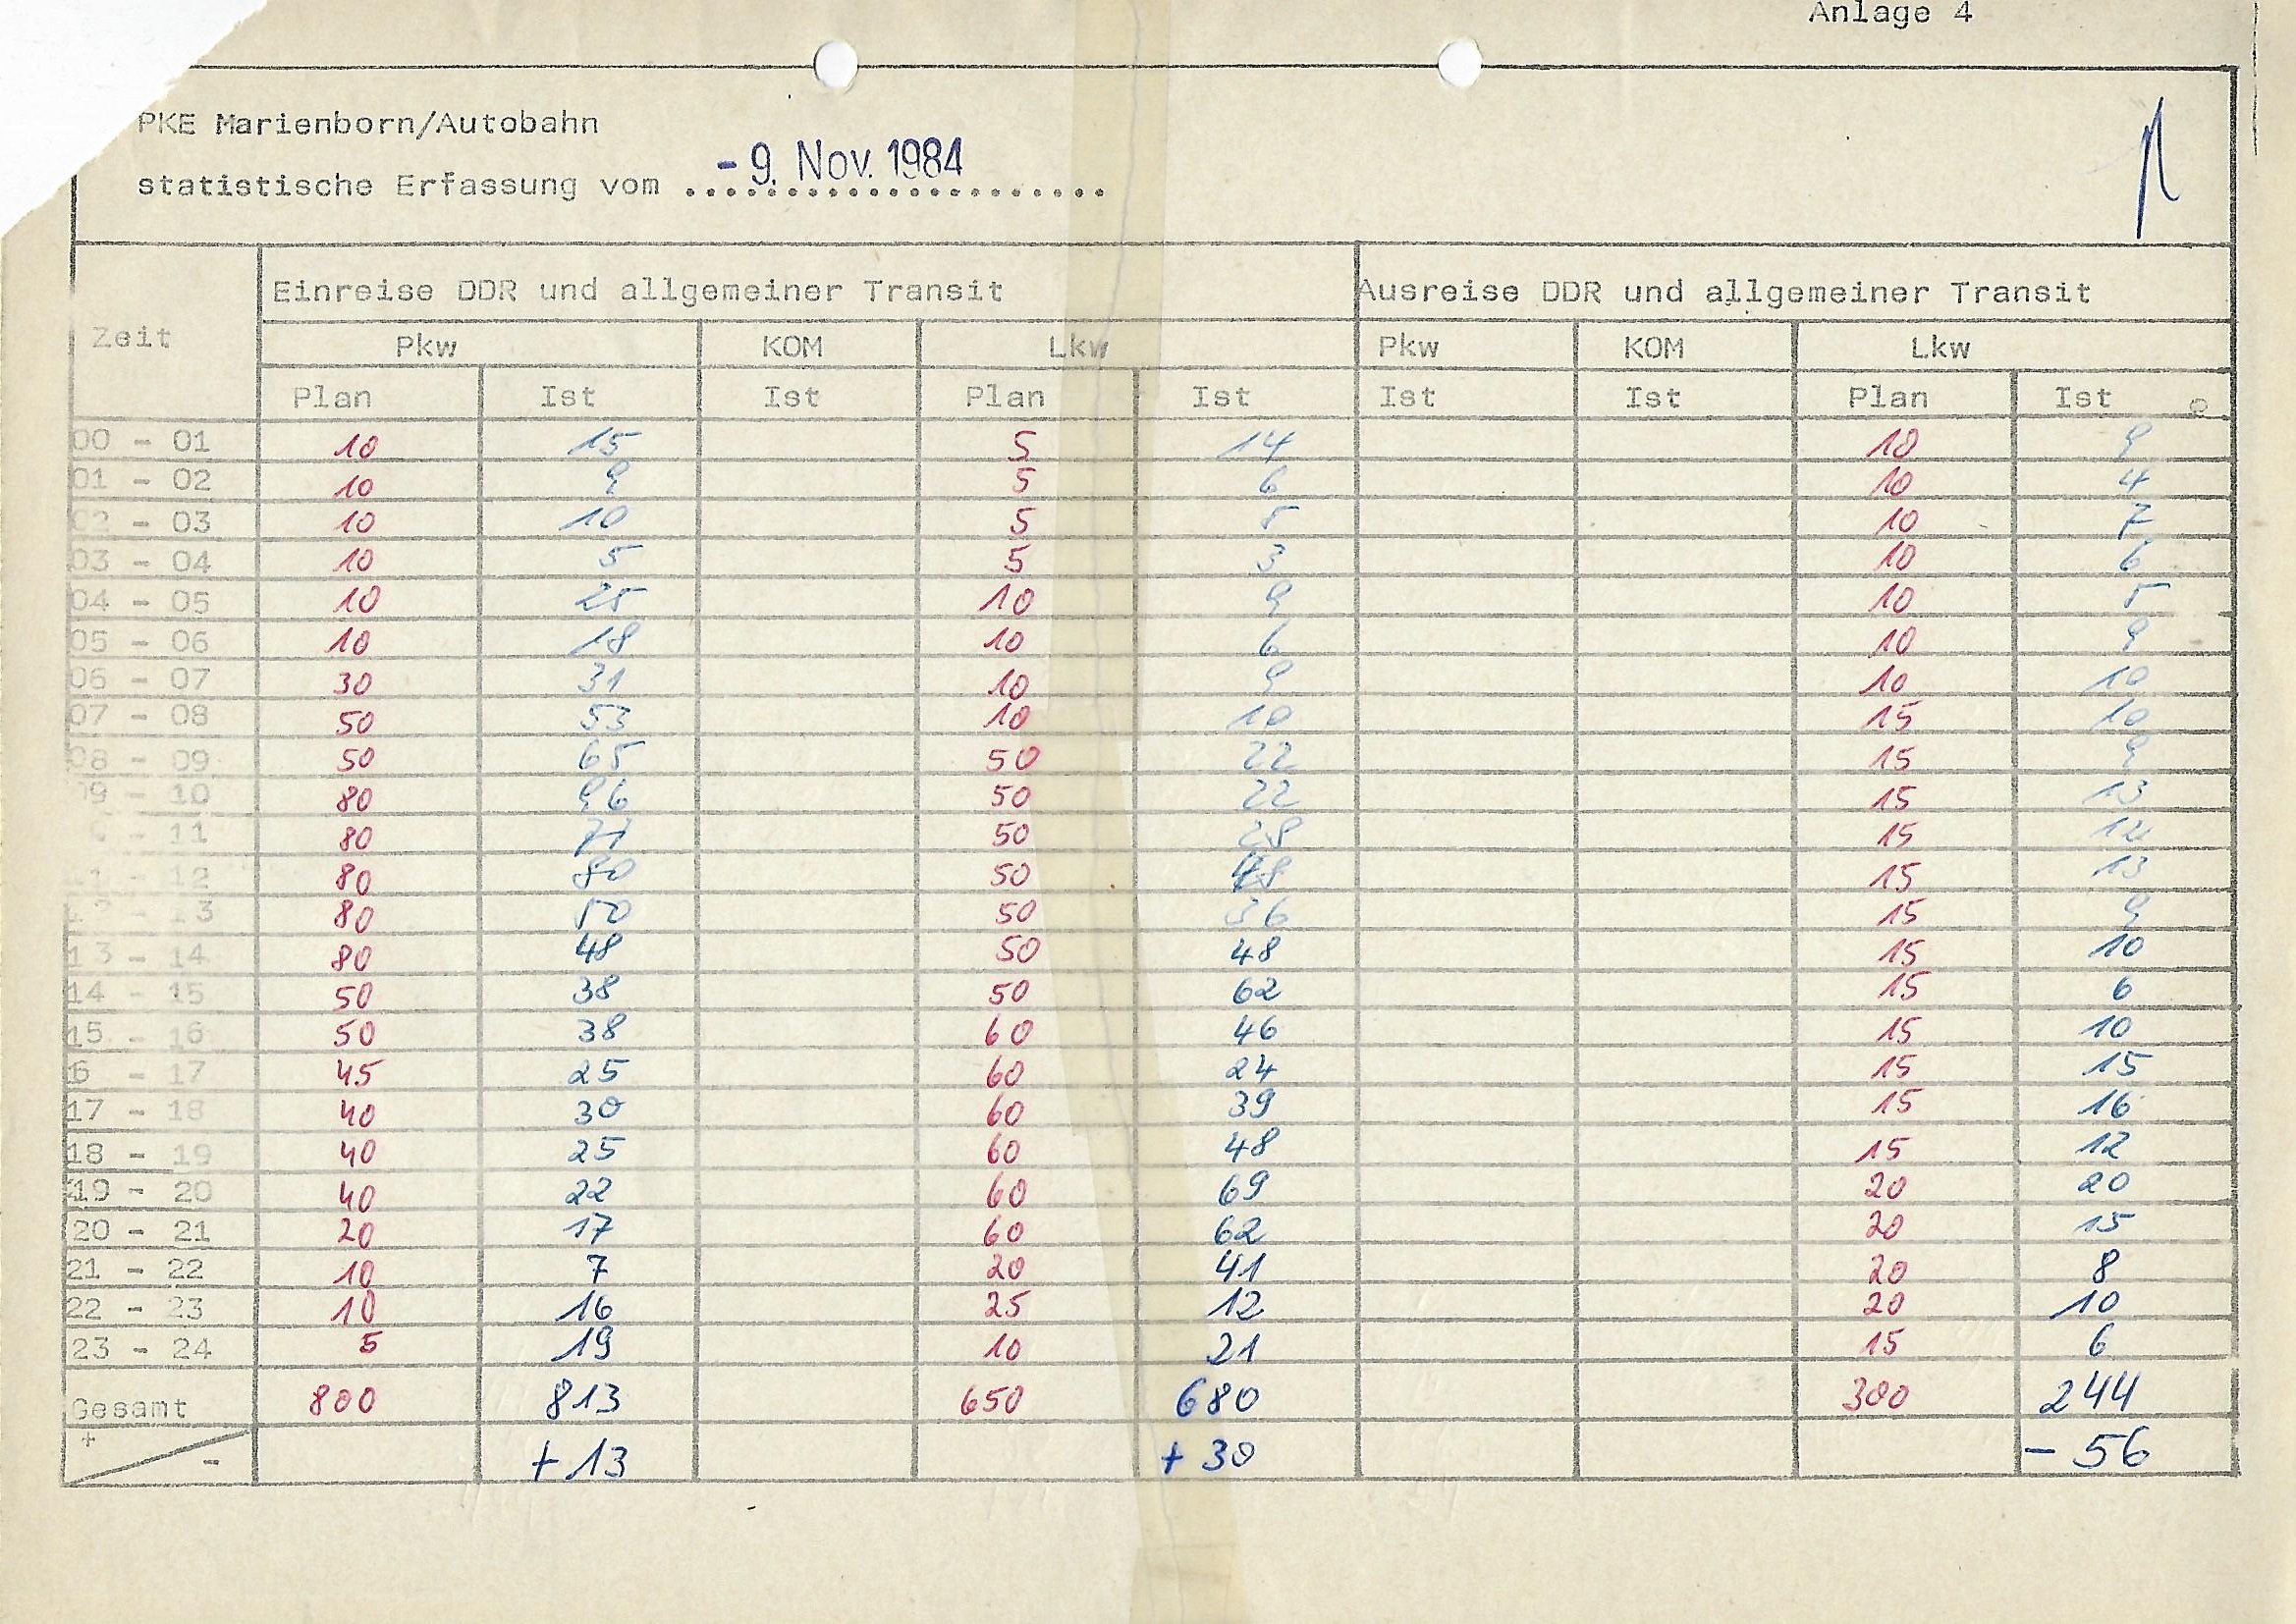 Anlage 4
PKE Marienborn/Autobahn
statistische Erfassung vom - 9. Nov. 1984
Zeit Einreise DDR und allgemeiner Transit Ausreise DDR und allgemeiner Transit
Pkw KOM Lkw Pkw KOM Lkw
Plan Ist Ist Plan Ist Ist Ist Plan Ist
00 - 01 10 15 5 14 10 9
01 - 02 10 9 5 6 10 4
02 - 03 10 10 5 5 10 7
03 - 04 10 5 5 3 10 6
04 - 05 10 25 10 9 10 5
05 - 06 10 18 10 6 10 9
06 - 07 30 31 10 9 10 10
07 - 08 50 53 10 10 15 10
08 - 09 50 65 50 22 15 9
09 - 10 80 96 50 22 15 13
- 11 80 50 28 15 12
- 12 80 80 50 48 15 13
12 - 13 80 50 50 36 15 9
13 - 14 80 48 50 48 15 10
14 - 15 50 38 50 62 15 6
15 - 16 50 38 60 46 15 10
6 - 17 45 25 60 24 15 15
17 - 18 40 30 60 39 15 16
18 - 19 40 25 60 48 15 12
19 - 20 40 22 60 69 20 20
20 - 21 20 17 60 62 20 15
21 - 22 10 7 20 41 20 8
22 - 23 10 16 25 12 20 10
23 - 24 5 19 10 21 15 6
Gesamt 800 813 650 680 300 244
+ - + 13 + 30 - 56